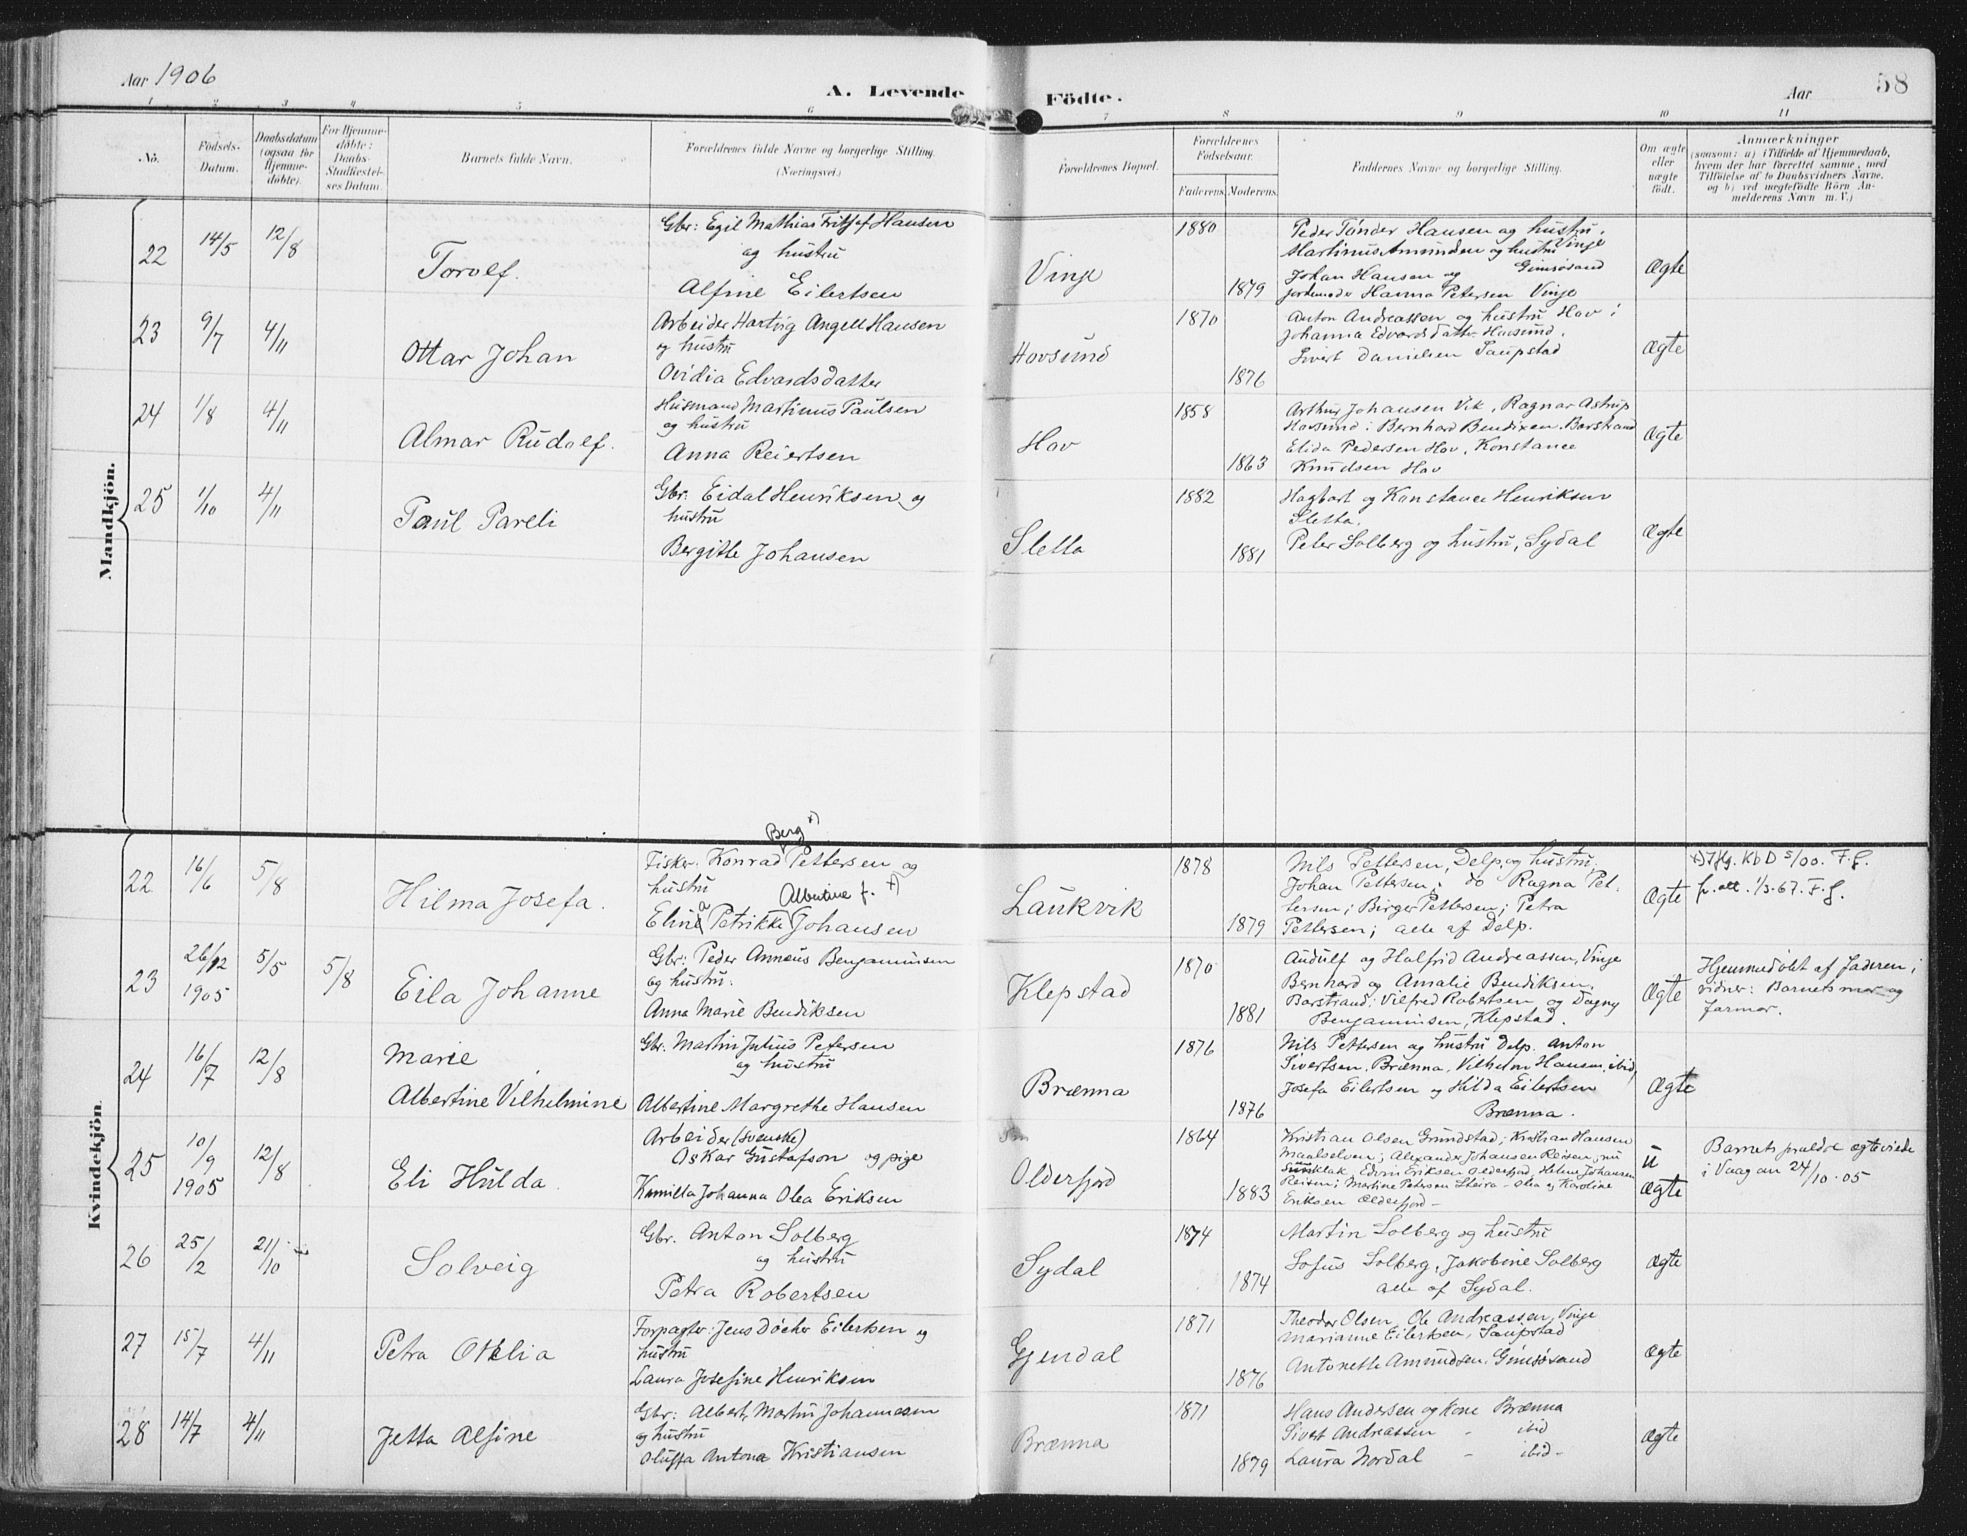 Aar 1906
A. Levende
Födte.
Aar
58
1 2 3 4 5 6 7 8 9 10 11
No.
Födsels-
Datum.
Daabsdatum
(ogsaa for
Hjemme-
döbte).
For Hjemme-
döbte:
Daabs-
Stadfæstel-
ses Datum.
Barnets fulde Navn.
Forældrenes fulde Navne og borgerlige Stilling
(Næringsvei.)
Forældrenes Bopæl.
Forældrenes
Födselsaar.
Faderens. Moderens.
Faddernes Navne og borgerlige Stilling.
Om ægte
eller
uægte
födt.
Anmærkninger
(saasom: a) i Tilfælde af Hjemmedaab,
hvem der har forrettet samme, med
Tilföielse af to Daabsvidners Navne.
og b) ved uægtefödte Börn An-
melderens Navn m. V.)
Mandkjön.
22 14/5 12/8 Torolf.
Gbr: Egil Mathias Fritjof Hansen
og hustru
Alfine Eilertsen
Vinje
1880
1879
Peder Tönder Hansen og hustru,
Martinus Amundsen og hustru Vinje
Johan Hansen og Gimsøsand
jordemoder Hanna Petersen Vinje
Ægte
23 9/7 4/11 Ottar Johan
Arbeider Hartvig Angell Hansen
og hustru
Ovidia Edvardsdatter
Hovsund
1870
1876
Anton Andreassen og hustru Hov;
Johanna Edvardsdatter Hovsund.
Sivert Danielsen Saupstad
Ægte
24 1/8 4/11 Almar Rudolf.
Husmand Martinus Paulsen
og hustru
Anna Reiertsen
Hov
1858
1863
Arthur Johansen Vik, Ragnar Astrup
Hovsund; Bernhard Bendixen Barstrand
Elida Pedersen Hov, Konstance
Knudsen Hov
Ægte
25 1/10 4/11 Paul Pareli
Gbr: Eidal Henriksen og
hustru
Bergitte Johansen
Sletta
1882
1881
Hagbart og Konstance Henriksen
Sletta.
Peter Solberg og hustru, Sydal
Ægte
Kvindekjön.
22 16/6 5/8 Hilma Josefa.
Berg x)
Fisker. Konrad Pettersen og
hustru Albertine f. x)
Elina Petrikke Johansen
Laukvik
1878
1879
Nils Pettersen, Delp og hustru;
Johan Pettersen; do Ragna Pet-
tersen; Birger Pettersen; Petra
Pettersen; alle af Delp.
Ægte
x) Iflg. Kb D 5/00. F.G.
fr. att. 1/3-67. F.G.
23 26/12 1905 5/5 5/8 Eila Johanne
Gbr: Peder Anneus Benjaminsen
og hustru:
Anna Marie Bendiksen
Klepstad
1870
1881
Audulf og Halfrid Andreassen, Vinje
Bernhard og Amalie Bendiksen,
Barstrand; Vilfred Robertsen og Dagny
Benjaminsen, Klepstad.
Ægte
Hjemmedöbt af faderen;
vidner: Barnets mor og
farmor.
24 16/7 12/8 Marie
Albertine Vilhelmine
Gbr. Martin Julius Petersen
og hustru
Albertine Margrethe Hansen
Brænna
1876
1876
Nils Pettersen og hustru Delp. Anton
Sivertsen, Brænna, Vilhelm Hansen, ibid,
Josefa Eilertsen og Hilda Eilertsen
Brænna.
Ægte
25 10/9 1905 12/8 Eli Hulda.
Arbeider (svenske)
Oskar Gustafson og pige
Kamilla Johanna Olea Eriksen
Olderfjord
1864
1883
Kristian Olsen Grundstad; Kristian Hansen
Maalselven; Alexander Johansen Reisen, nu
Sundklak, Edvin Eriksen Olderfjord, Helene Johansen
Reisen; Martine Petersen Steira - Olea og Karoline
Eriksen Olderfjord -
u
Ægte
Barnets forældre ægteviede
i Vaagan 24/10-05
26 25/2 21/10 Solveig
Gbr. Anton Solberg
og hustru
Petra Robertsen
Sydal
1874
1874
Martin Solberg og hustru
Sofus Solberg, Jakobine Solberg
alle af Sydal.
Ægte
27 15/7 4/11 Petra Otelia
Forpagter: Jens Döcker Eilertsen og
hustru
Laura Josefine Henriksen
Gjendal
1871
1876
Theodor Olsen, Ole Andreassen, Vinje
Marianne Eilertsen, Saupstad
Antonette Amundsen, Gimsøsand
Ægte
28 14/7 4/11 Jetta Alfine
Gbr: Albert Martin Johannesen
og hustru
Oluffa Antona Kristiansen
Brænna
1871
1879
Hans Andersen og kone Brænna
Sivert Andreassen - ibid
Laura Nordal - ibid-
Ægte